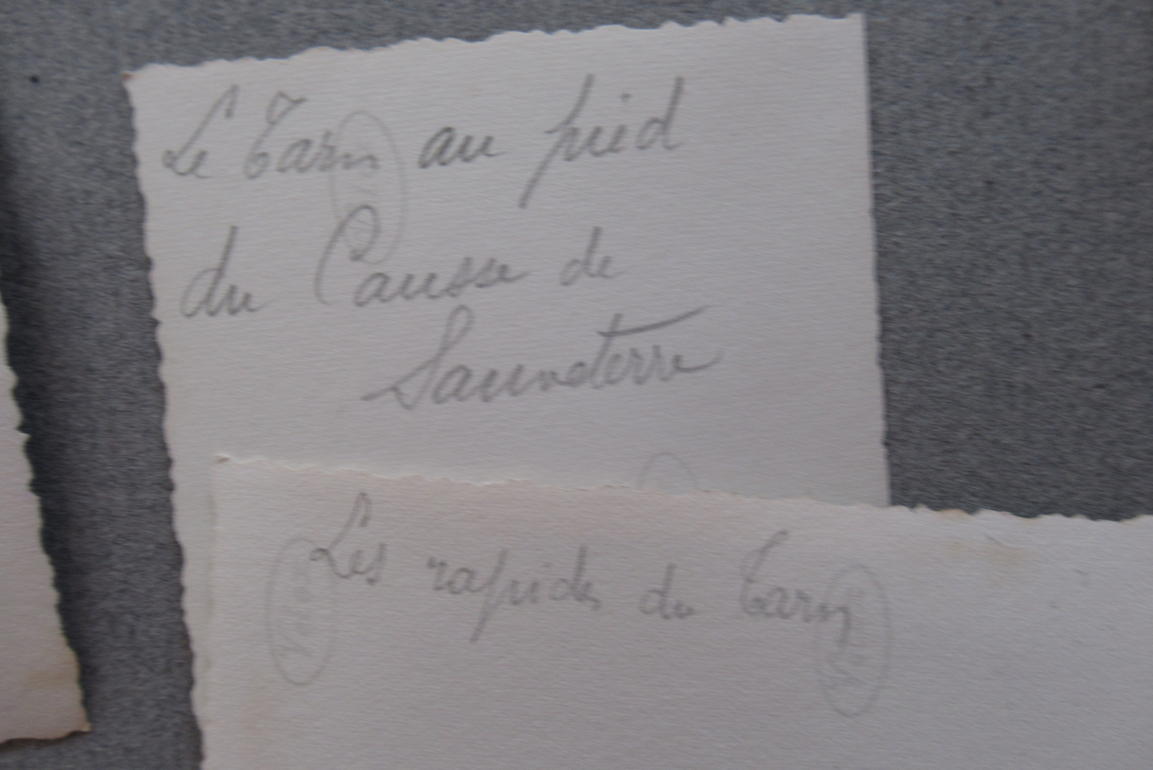 Le Tarn au pied
du Causse de
Sauveterre
Les rapides du Tarn